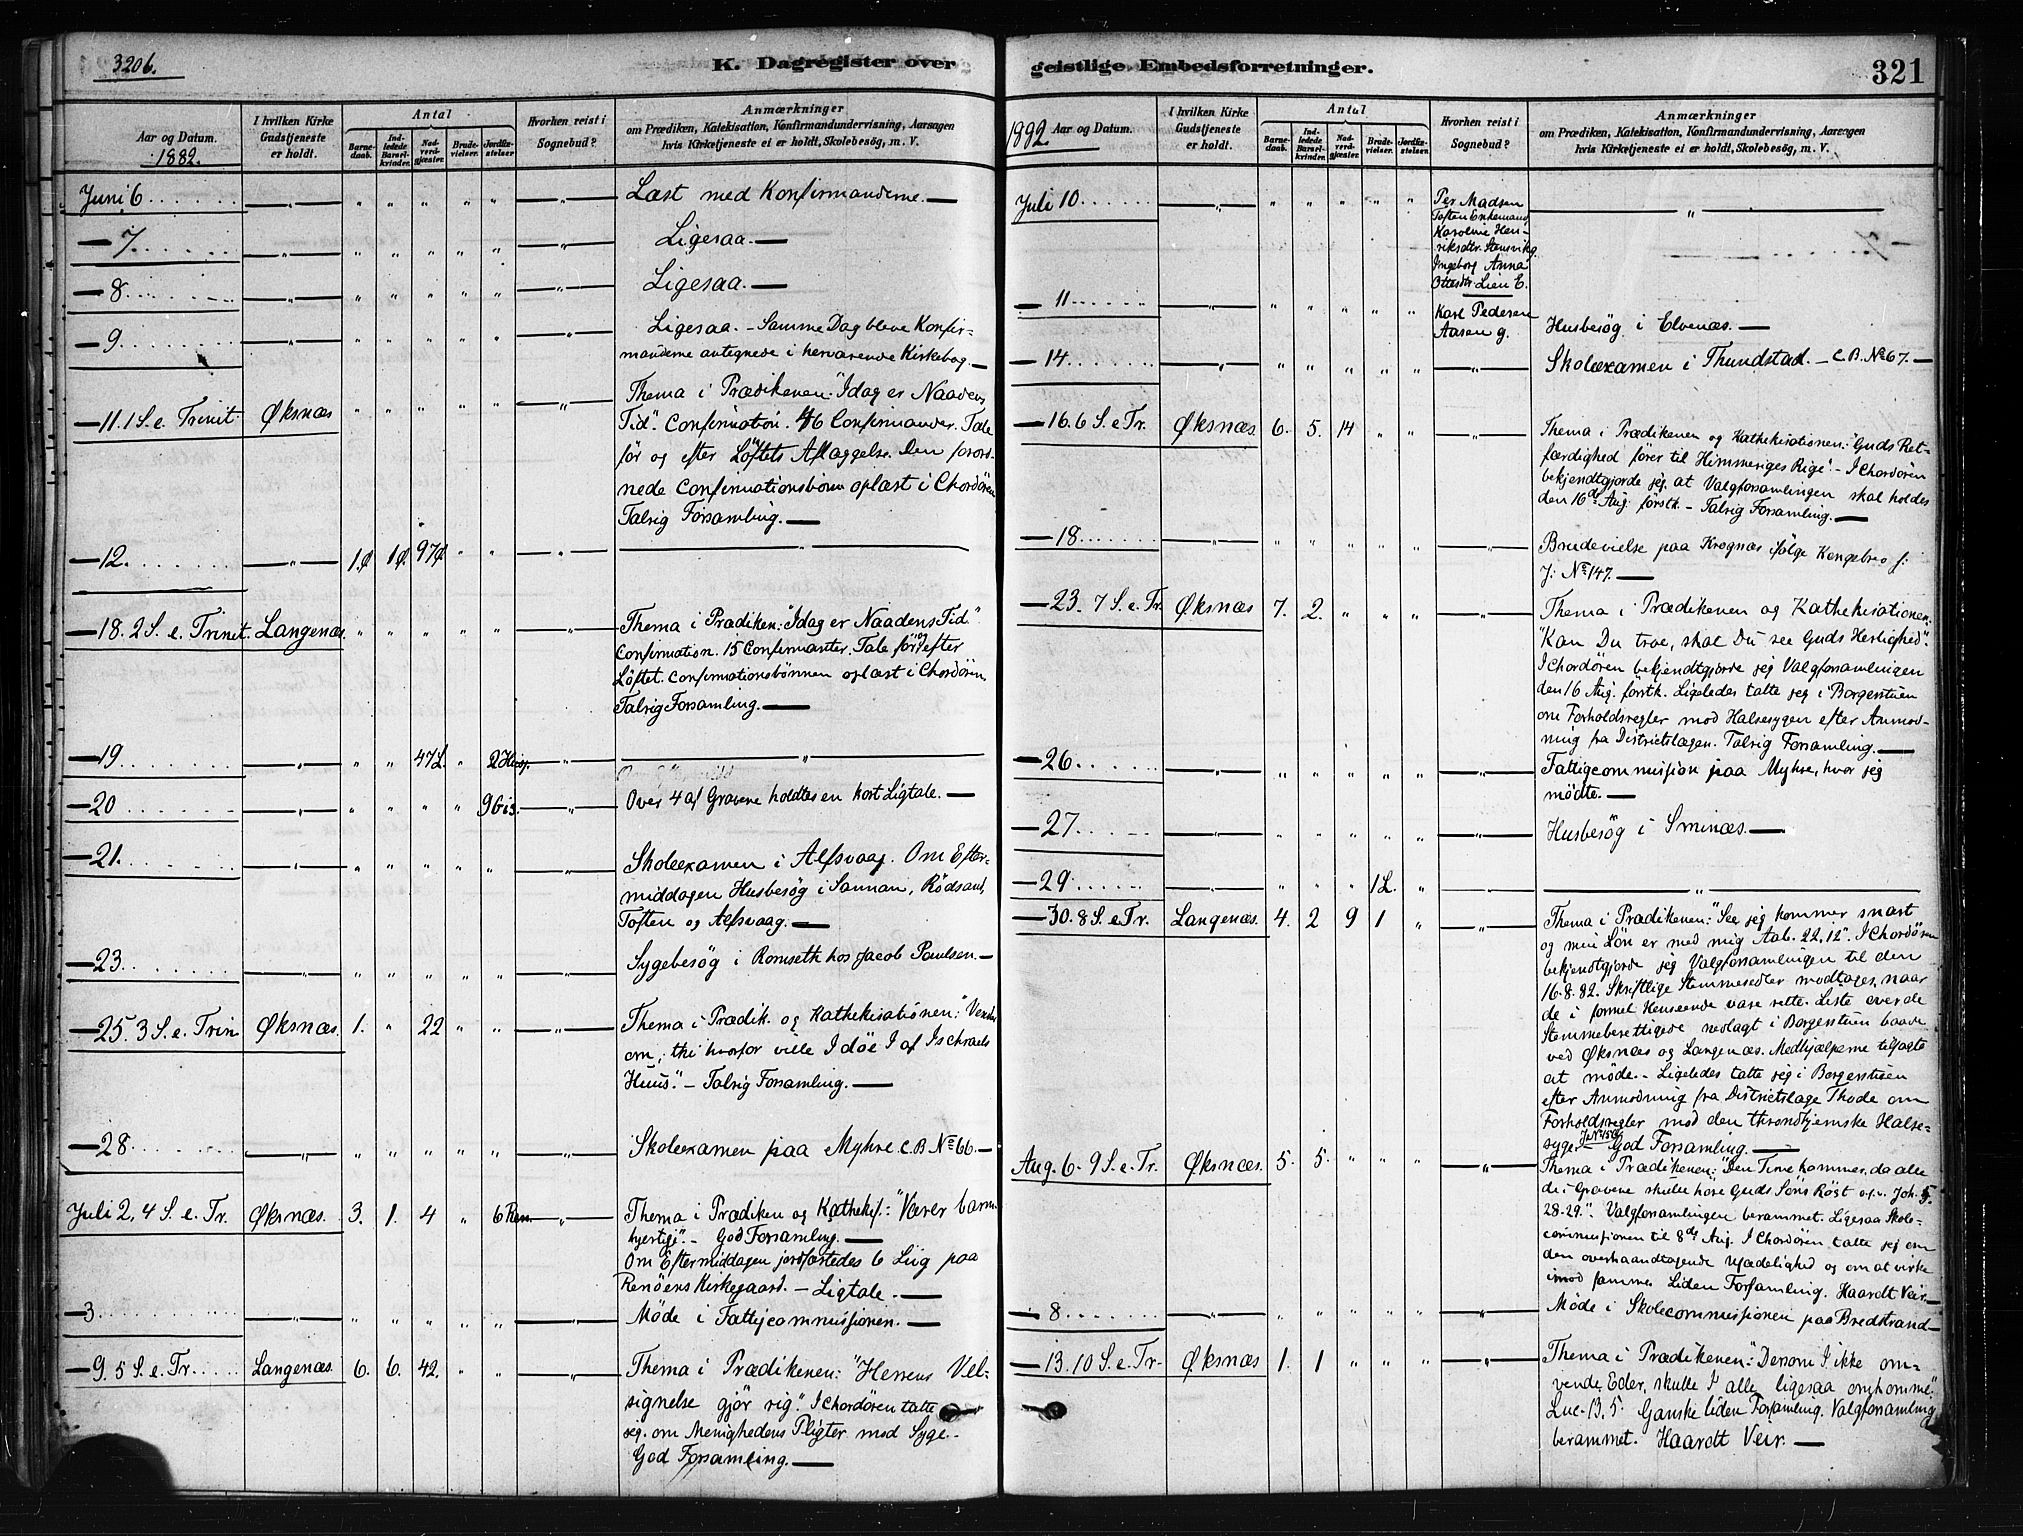 3206.
K. Dagregister over
Aar og Datum.
1882.
I hvilken Kirke Gudstjeneste er holdt.
Antal
Barnedaab.
Indledede Barselkvinder.
Nadverdgjæster.
Brudevielser.
Jordfæstelser
Hvorhen reist i Sognebud?
Anmærkninger
om Prædiken, Katekisation, Konfirmandundervisning, Aarsagen
hvis Kirketjeneste ei er holdt, Skolebesøg, m. V.
Juni 6 " " " " " " " Læst med Konfirmanderne.—
— 7. " " " " " " " Ligesaa.—
— 8 " " " " " " " Ligesaa.—
— 9 " " " " " " " Ligesaa.— Samme Dag bleve Konfir-
manderne antegnede i hervarende Kirkebog.—
— 11. 1 S. e. Trinit. Øksnæs " " " " " " Thema i Prædikenen: "Idag er Naadens
Tid". Confirmation. 46 Confirmander. Tale
før og efter Løftets Aflæggelse. Den forord-
nede Confirmationsbøn oplæst i Chordøren
Talrig Forsamling.—
— 12. " 1.Ø 1Ø. 97Ø " " " "
— 18. 2 S. e. Trinit. Langenæs. " " " " " " Thema i Prædiken: "Idag er Naadens Tid."
Confirmation. 15 Confirmanter. Tale før og efter
Løftet. Confirmationsbønnen oplæst i Chordøren
Talrig Forsamling.—
— 19 " " " 47L. " 2 " "
— 20 " " " " " 9 Gis. " Over 4 af Gravene holdtes en kort Ligtale.—
— 21. " " " " " " " Skoleexamen i Alfsvaag. Om Efter-
middagen Husbesøg i Sannan, Rødsand,
Toften og Alfsvaag.—
— 23 " " " " " " " Sygebesøg i Romseth hos Jacob Paulsen.—
— 25. 3 S. e. Trin Øksnæs. 1. " 22 " " " Thema i Prædik. og Kathekisationen: "Vender
om, thi hvorfor ville I døe I af Ischraels
Huus." — Talrig Forsamling.—
— 28 " " " " " " " Skoleexamen paa Myhre. C.B. No 66.—
Juli 2, 4 S. e. Tr. Øksnæs. 3. 1. 4 " 6 Ren. " Thema i Prædiken og Kathekis.: "Værer barm-
hjertige". — God Forsamling.—
Om Eftermiddagen jordfæstedes 6 Liig paa
Renøens Kirkegaard. — Ligtale.—
— 3. " " " " " " " Møde i Fattigcommissionen.—
— 9. 5 S. e. Tr. Langenæs. 6. 6. 42. " " Thema i Prædikenen: "Herrens Vel-
signelse gjør rig." I Chordøren talte
jeg om Menighedens Pligter mod Syge.
God Forsamling.—
geistlige Embedsforretninger.
321
1882 Aar og Datum.
I hvilken Kirke Gudstjeneste er holdt.
Antal
Barnedaab.
Indledede Barselkvinder.
Nadverdgjæster.
Brudevielser.
Jordfæstelser
Hvorhen reist i Sognebud?
Anmærkninger
om Prædiken, Katekisation, Konfirmandundervisning, Aarsagen
hvis Kirketjeneste ei er holdt, Skolebesøg, m. V.
Juli 10 " " " " " " Per Madsen "
Toften Enkemand
Karoline Hen-
riksdtr. Stensvik g.
Ingeborg Anna
Ottesdtr Lien E.
— 11 " " " " " " Karl Pedersen
Aasen g. Husbesøg i Elvenæs.—
— 14 " " " " " " " Skoleexamen i Thunstad. — C.B. No 67.—
— 16. 6 S. e Tr. Øksnæs. 6. 5. 14 " " " Thema i Prædikenen og Kathekisationen: "Guds Ret-
færdighed fører til Himmeriges Rige". — I Chordøren
bekjendtgjorde jeg, at Valgforsamlingen skal holdes
den 16de Aug. førstk. — Talrig Forsamling.—
— 18 " " " " " " " Brudevielse paa Krognæs ifølge Kongebrev
J: No 147.—
— 23. 7 S. e. Tr. Øksnæs 7. 2. " " " " Thema i Prædikenen og Kathekisationen:
"Kan Du troe, skal Du see Guds Herlighed".
I Chordøren bekjendtgjorde jeg Valgforsamlingen
den 16 Aug. førstk. Ligeledes talte jeg i Borgerstuen
om Forholdsregler mod Halsesygen efter Anmod-
ning fra Districtslægen. Talrig Forsamling.—
— 26 " " " " " " " Fattigcommission paa Myhre, hvor jeg
mødte.—
— 27. " " " " " " " Husbesøg i Sminæs.—
— 29 " " " 1L. " " "
— 30. 8 S. e Tr. Langenæs. 4. 2 9 1 " " Thema i Prædikenen: "See jeg kommer snart
og min Løn er med mig Aab. 22,12". I Chordøren
bekjendtgjorde jeg Valgforsamlingen til den
16-8-82. Skriftlige Stemmesedler modtages, naar
de i formel Henseende vare rette. Liste over de
Stemmeberettigede nedlagt i Borgerstuen baade
ved Øksnæs og Langenæs. Medhjælperne tilsagte
at møde. — Ligeledes talte jeg i Borgerstuen
efter Anmodning fra Districtslæge Thode om
Forholdsregler mod den throndhjemske Halse-
syge. God Forsamling.—
Aug. 6. 9 S. e. Tr. Øksnæs. 5. 5. " " " " Thema i Prædikenen: "Den Time kommer, da alle
de i Gravene skulle høre Guds Søns Røst o.s.v. Joh. 5.
28-29." Valgforsamlingen berammet. Ligesaa Skole-
commissionen til 8de Aug. I Chordøren talte jeg om
den overhaandtagende Usædelighed og om at virke
imod samme. Liden Forsamling. Haardt Veir.—
— 8 " " " " " " " Møde i Skolecommissionen paa Bredstrand—
— 13. 10 S. e. Tr. Øksnæs 1. 1 " " " " Thema i Prædikenen: "Dersom I ikke om-
vende Eder, skulle I alle ligesaa omkomme."
Luc-13,5. Ganske liden Forsamling. Valgforsamling
berammet. Haardt Veir.—